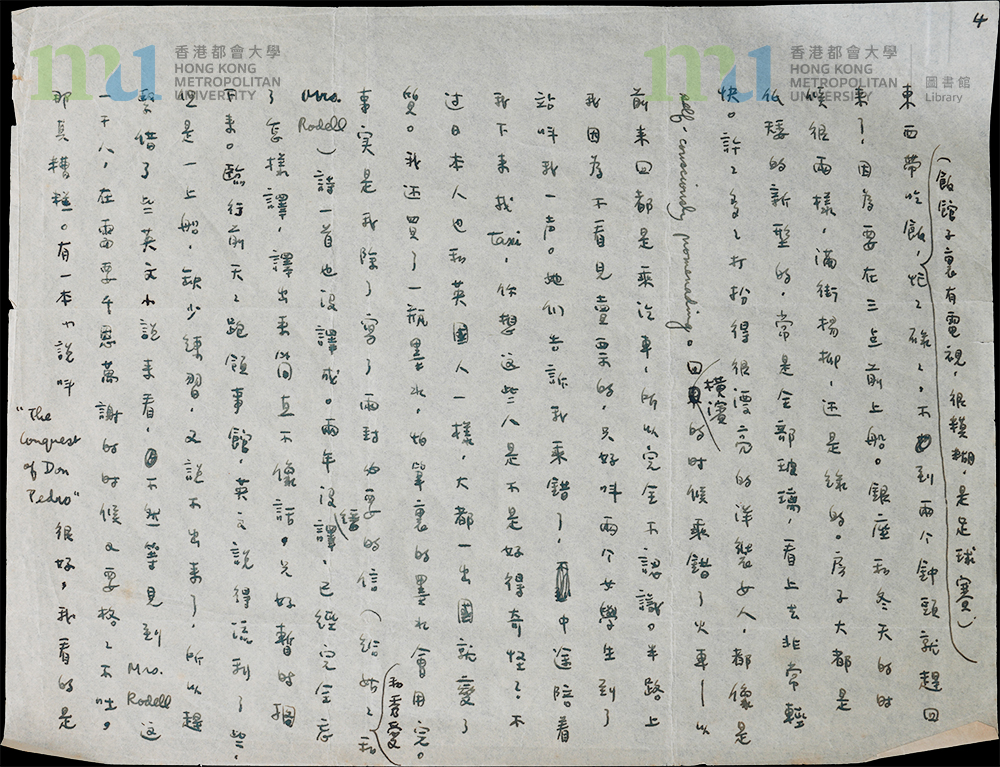 香港都會大學
HONG KONG
METROPOLITAN
UNIVERSITY
香港都會大學
HONG KONG
METROPOLITAN
UNIVERSITY
圖書館
Library
4
(飯館子裏有電視,很糢糊,是足球賽)
東西帶吃飯,忙忙碌碌,不到兩个鐘頭就趕回
來了,因為要在三点前上船。銀座和冬天的時
候很兩樣,滿街楊柳,还是綠的。房子大都是
低矮的新型的,常是全部玻璃,看上去非常輕
快。許許多多打扮得很漂亮的洋裝女人,都像是
self-consciously promenading。回橫濱的時候乘錯了火車——以
前來回都是乘汽車,所以完全不認識。半路上
我因為不看見賣票的,只好叫兩个女學生到了
站叫我一声。她們告訴我乘錯了,中途陪着
我下來找taxi,你想這些人是不是好得奇怪?不
过日本人也和英國人一樣,大都一出國就變了
質。我还買了一瓶墨水,怕筆裏的墨水會用完。
事实是我除了寫了兩封必要的信(給姑姑和和秀愛
Mrs. Rodell)詩一首也沒譯成。兩年沒繙譯,已經完全忘
了怎樣譯,譯出來簡直不像話,只好暫時擱
下來。臨行前天天跑領事館,英文說得流利了些,
但是一上船,缺少練習,又說不出來了,所以趕
緊借了些英文小說來看,不然等見到Mrs. Rodell這
一干人,在需要千恩萬謝的時候又要格格不吐,
那真糟糕。有一本小說叫"The Conquest of Don Pedro"很好,我看的是